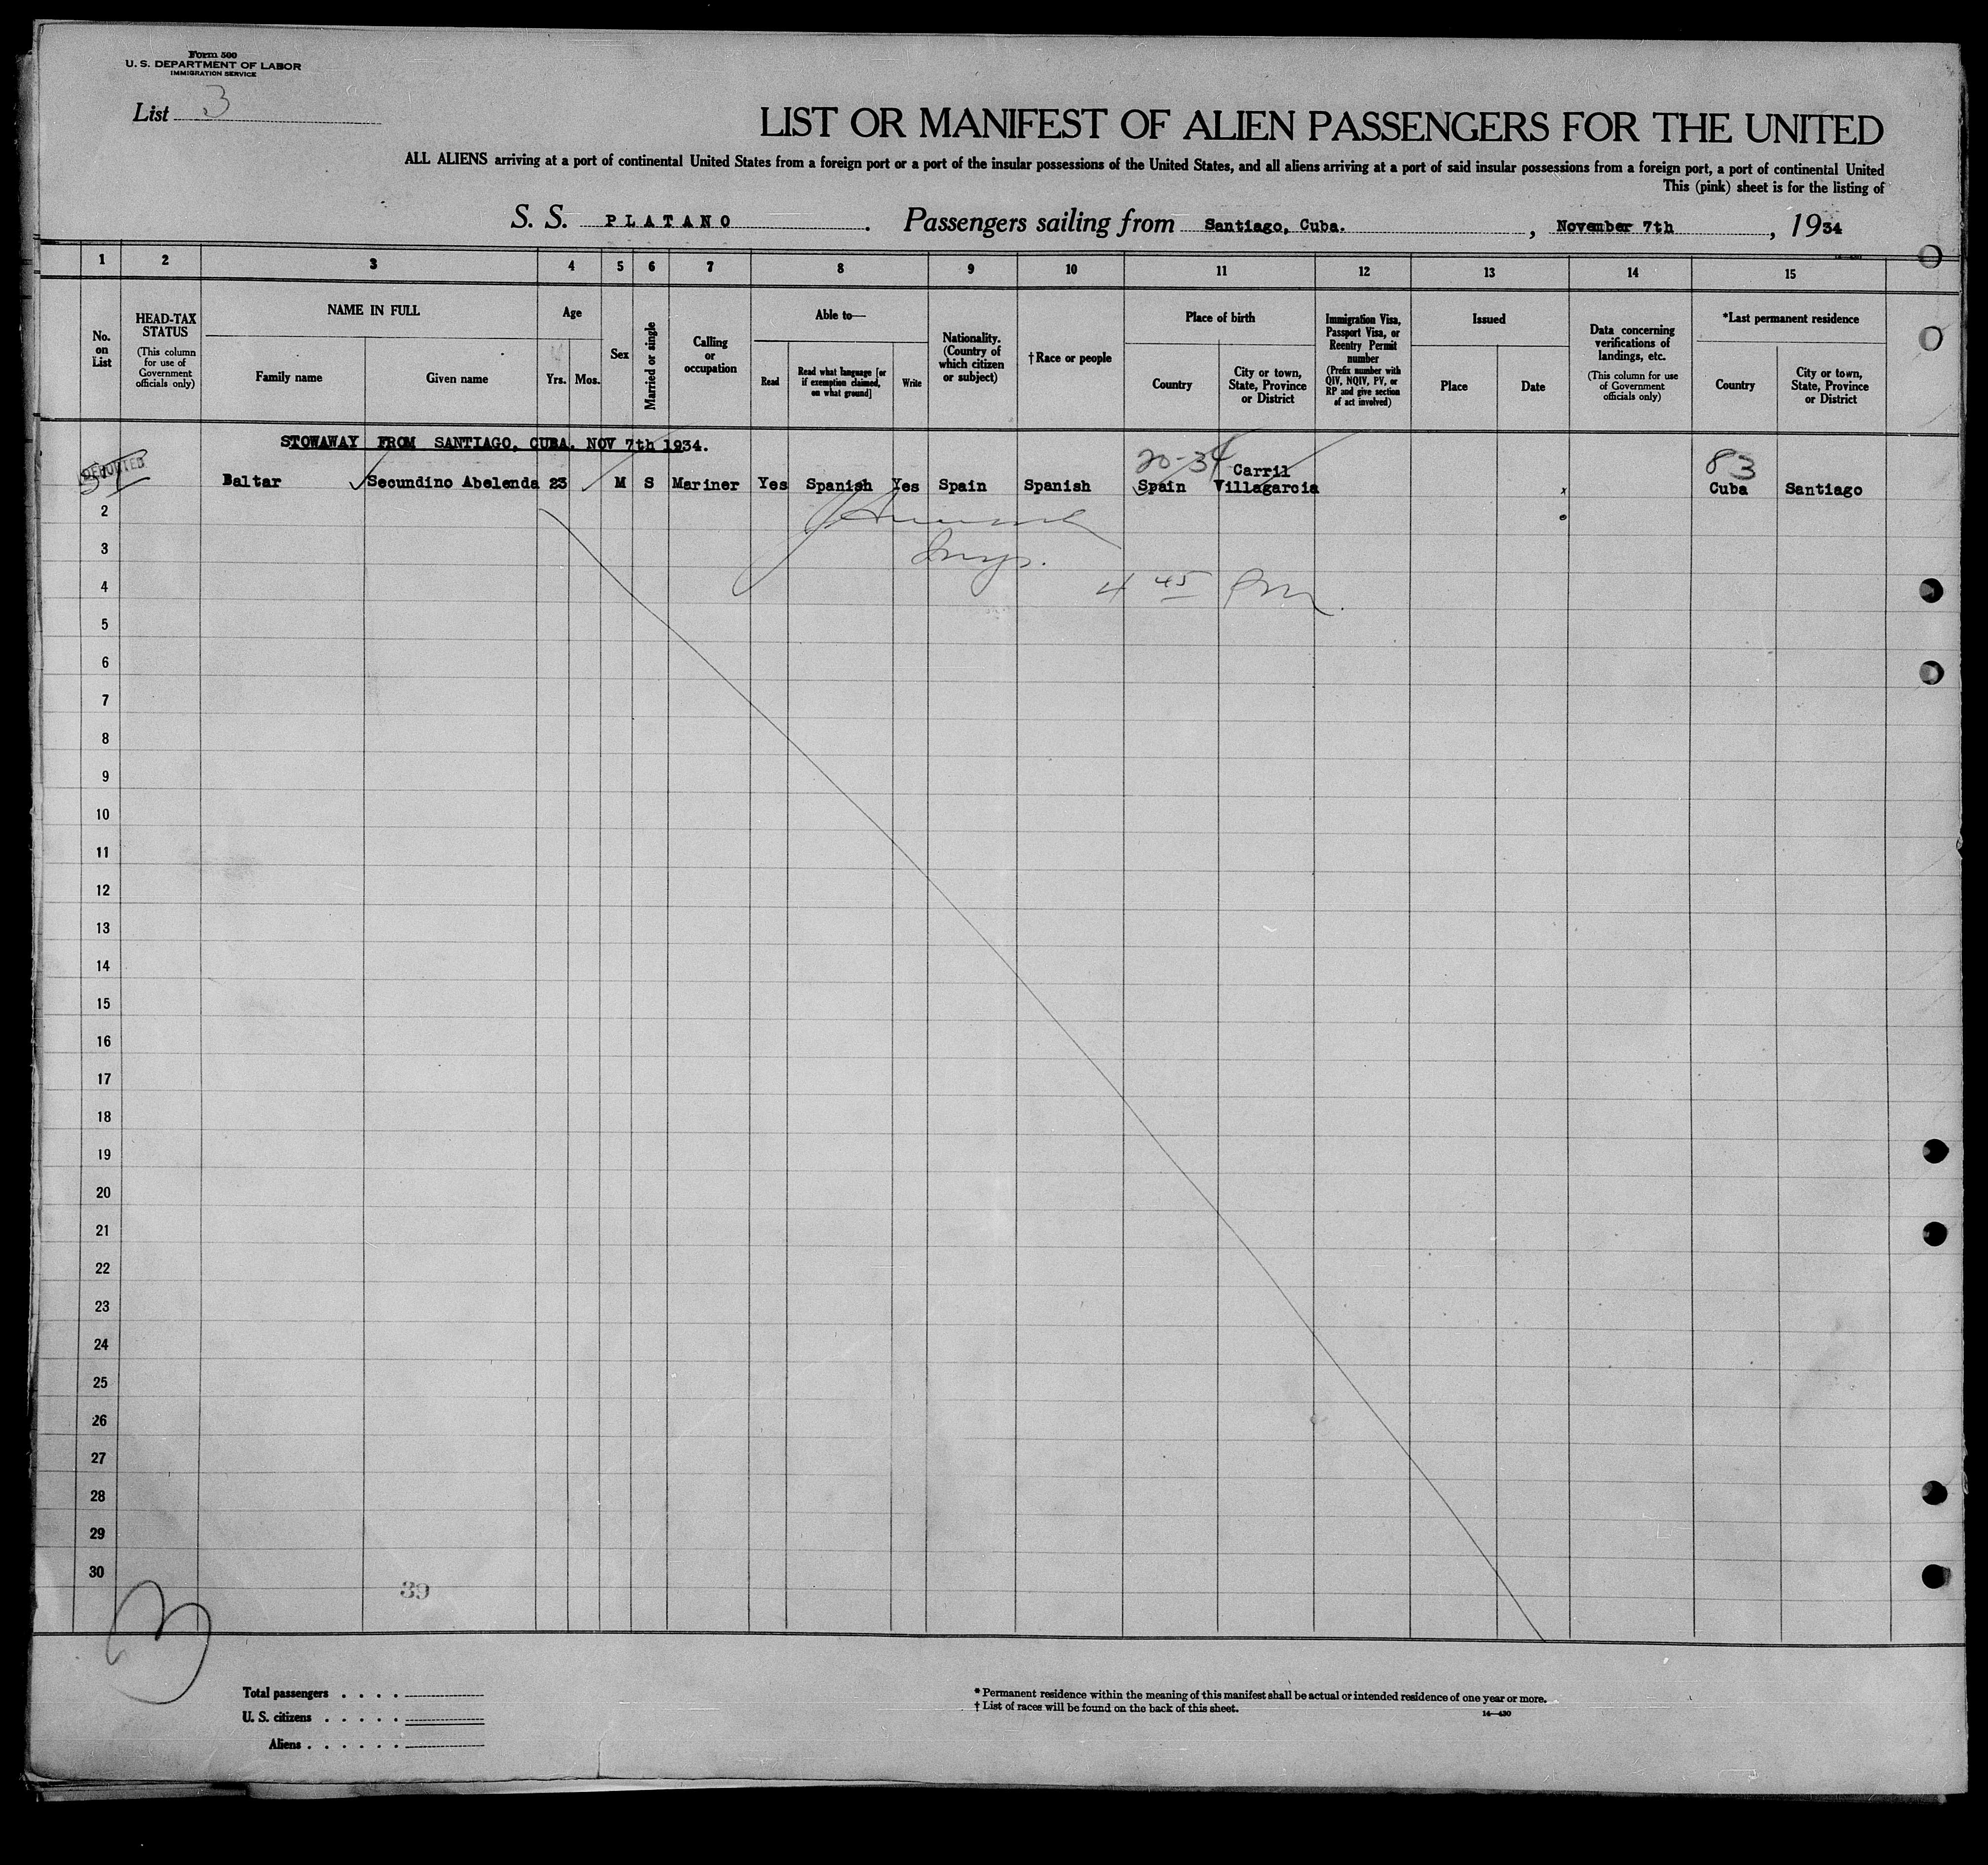 Form 500
U. S. DEPARTMENT OF LABOR
IMMIGRATION SERVICE
List 3
LIST OR MANIFEST OF ALIEN PASSENGERS FOR THE UNITED
ALL ALIENS arriving at a port of continental United States from a foreign port or a port of the insular possessions of the United States, and all aliens arriving at a port of said insular possessions from a foreign port, a port of continental United
This (pink) sheet is for the listing of
S. S. PLATANO . Passengers sailing from Santiago, Cuba. , November 7th , 1934
1 2 3 4 5 6 7 8 9 10 11 12 13 14 15
No. on List
HEAD-TAX STATUS
(This column for use of Government officials only)
NAME IN FULL
Family name
Given name
Age
Yrs.
Mos.
Sex
Married or single
Calling or occupation
Able to—
Read
Read what language [or if exemption claimed, on what ground]
Write
Nationality. (Country of which citizen or subject)
†Race or people
Place of birth
Country
City or town, State, Province or District
Immigration Visa, Passport Visa, or Reentry Permit number
(Prefix number with QIV, NQIV, PV, or RP and give section of act involved)
Issued
Place
Date
Data concerning verifications of landings, etc.
(This column for use of Government officials only)
*Last permanent residence
Country
City or town, State, Province or District
STOWAWAY FROM SANTIAGO, CUBA. NOV 7th 1934.
DEPORTED
20-34
Carril
83
Baltar Secundino Abelenda 23 M S Mariner Yes Spanish Yes Spain Spanish Spain Villagarcia Cuba Santiago
2
3 Insp.
4 4 45 PM
5
6
7
8
9
10
11
12
13
14
15
16
17
18
19
20
21
22
23
24
25
26
27
28
29
30
39
3
Total passengers . . . .
U. S. citizens . . . . .
Aliens . . . . . .
* Permanent residence within the meaning of this manifest shall be actual or intended residence of one year or more.
† List of races will be found on the back of this sheet.
14—430